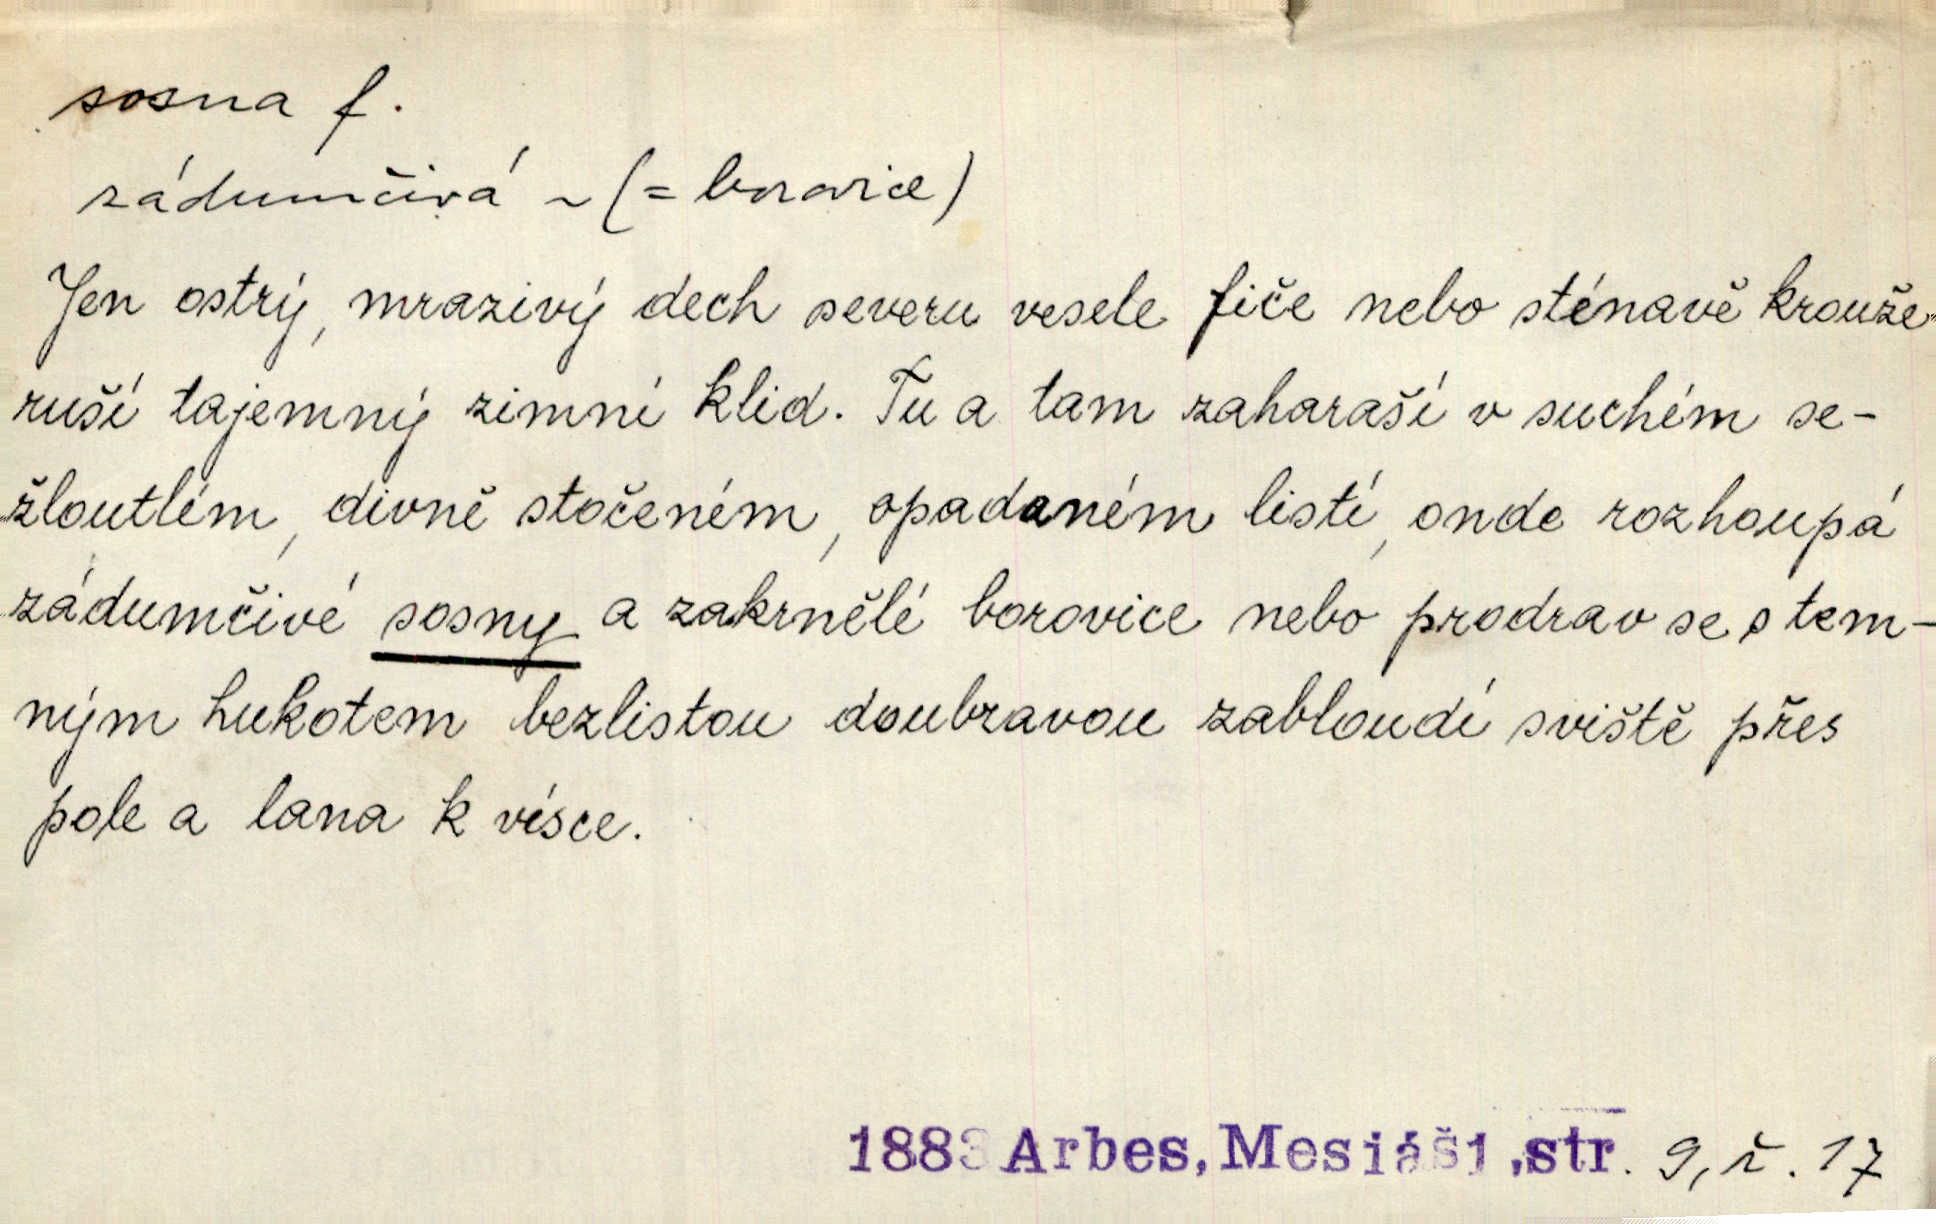 sosna f.
zádumčivá ~ (= borovice)
Jen ostrý, mrazivý dech severu vesele fiče nebo sténavě krouže
ruší tajemný zimní klid. Tu a tam zaharaší v suchém se-
žloutlém, divně stočeném, opadaném listí, onde rozhoupá
zádumčivé sosny a zakrnělé borovice nebo prodrav se s tem-
ným hukotem bezlistou doubravou zabloudí sviště přes
pole a lana k vísce.
1883 Arbes, Mesiáši, str. 9, ř. 17